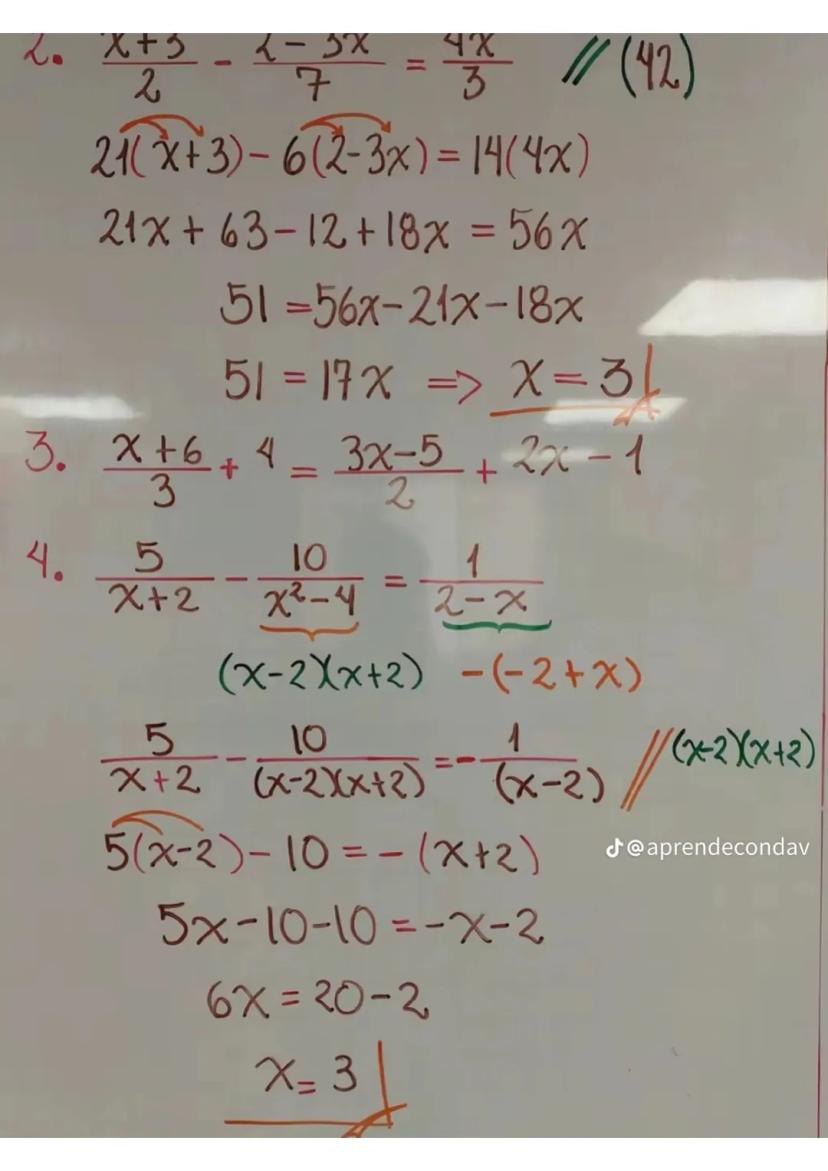 2. (x+3)/2 - (2-3x)/7 = 4x/3 // (42)
21(x+3) - 6(2-3x) = 14(4x)
21x + 63 - 12 + 18x = 56x
51 = 56x - 21x - 18x
51 = 17x => x = 3
3. (x+6)/3 + 4 = (3x-5)/2 + 2x - 1
4. 5/(x+2) - 10/(x²-4) = 1/(2-x)
(x-2)(x+2) -(-2+x)
5/(x+2) - 10/((x-2)(x+2)) = - 1/(x-2) // (x-2)(x+2)
5(x-2) - 10 = - (x+2)
@aprendecondav
5x - 10 - 10 = -x - 2
6x = 20 - 2
x = 3